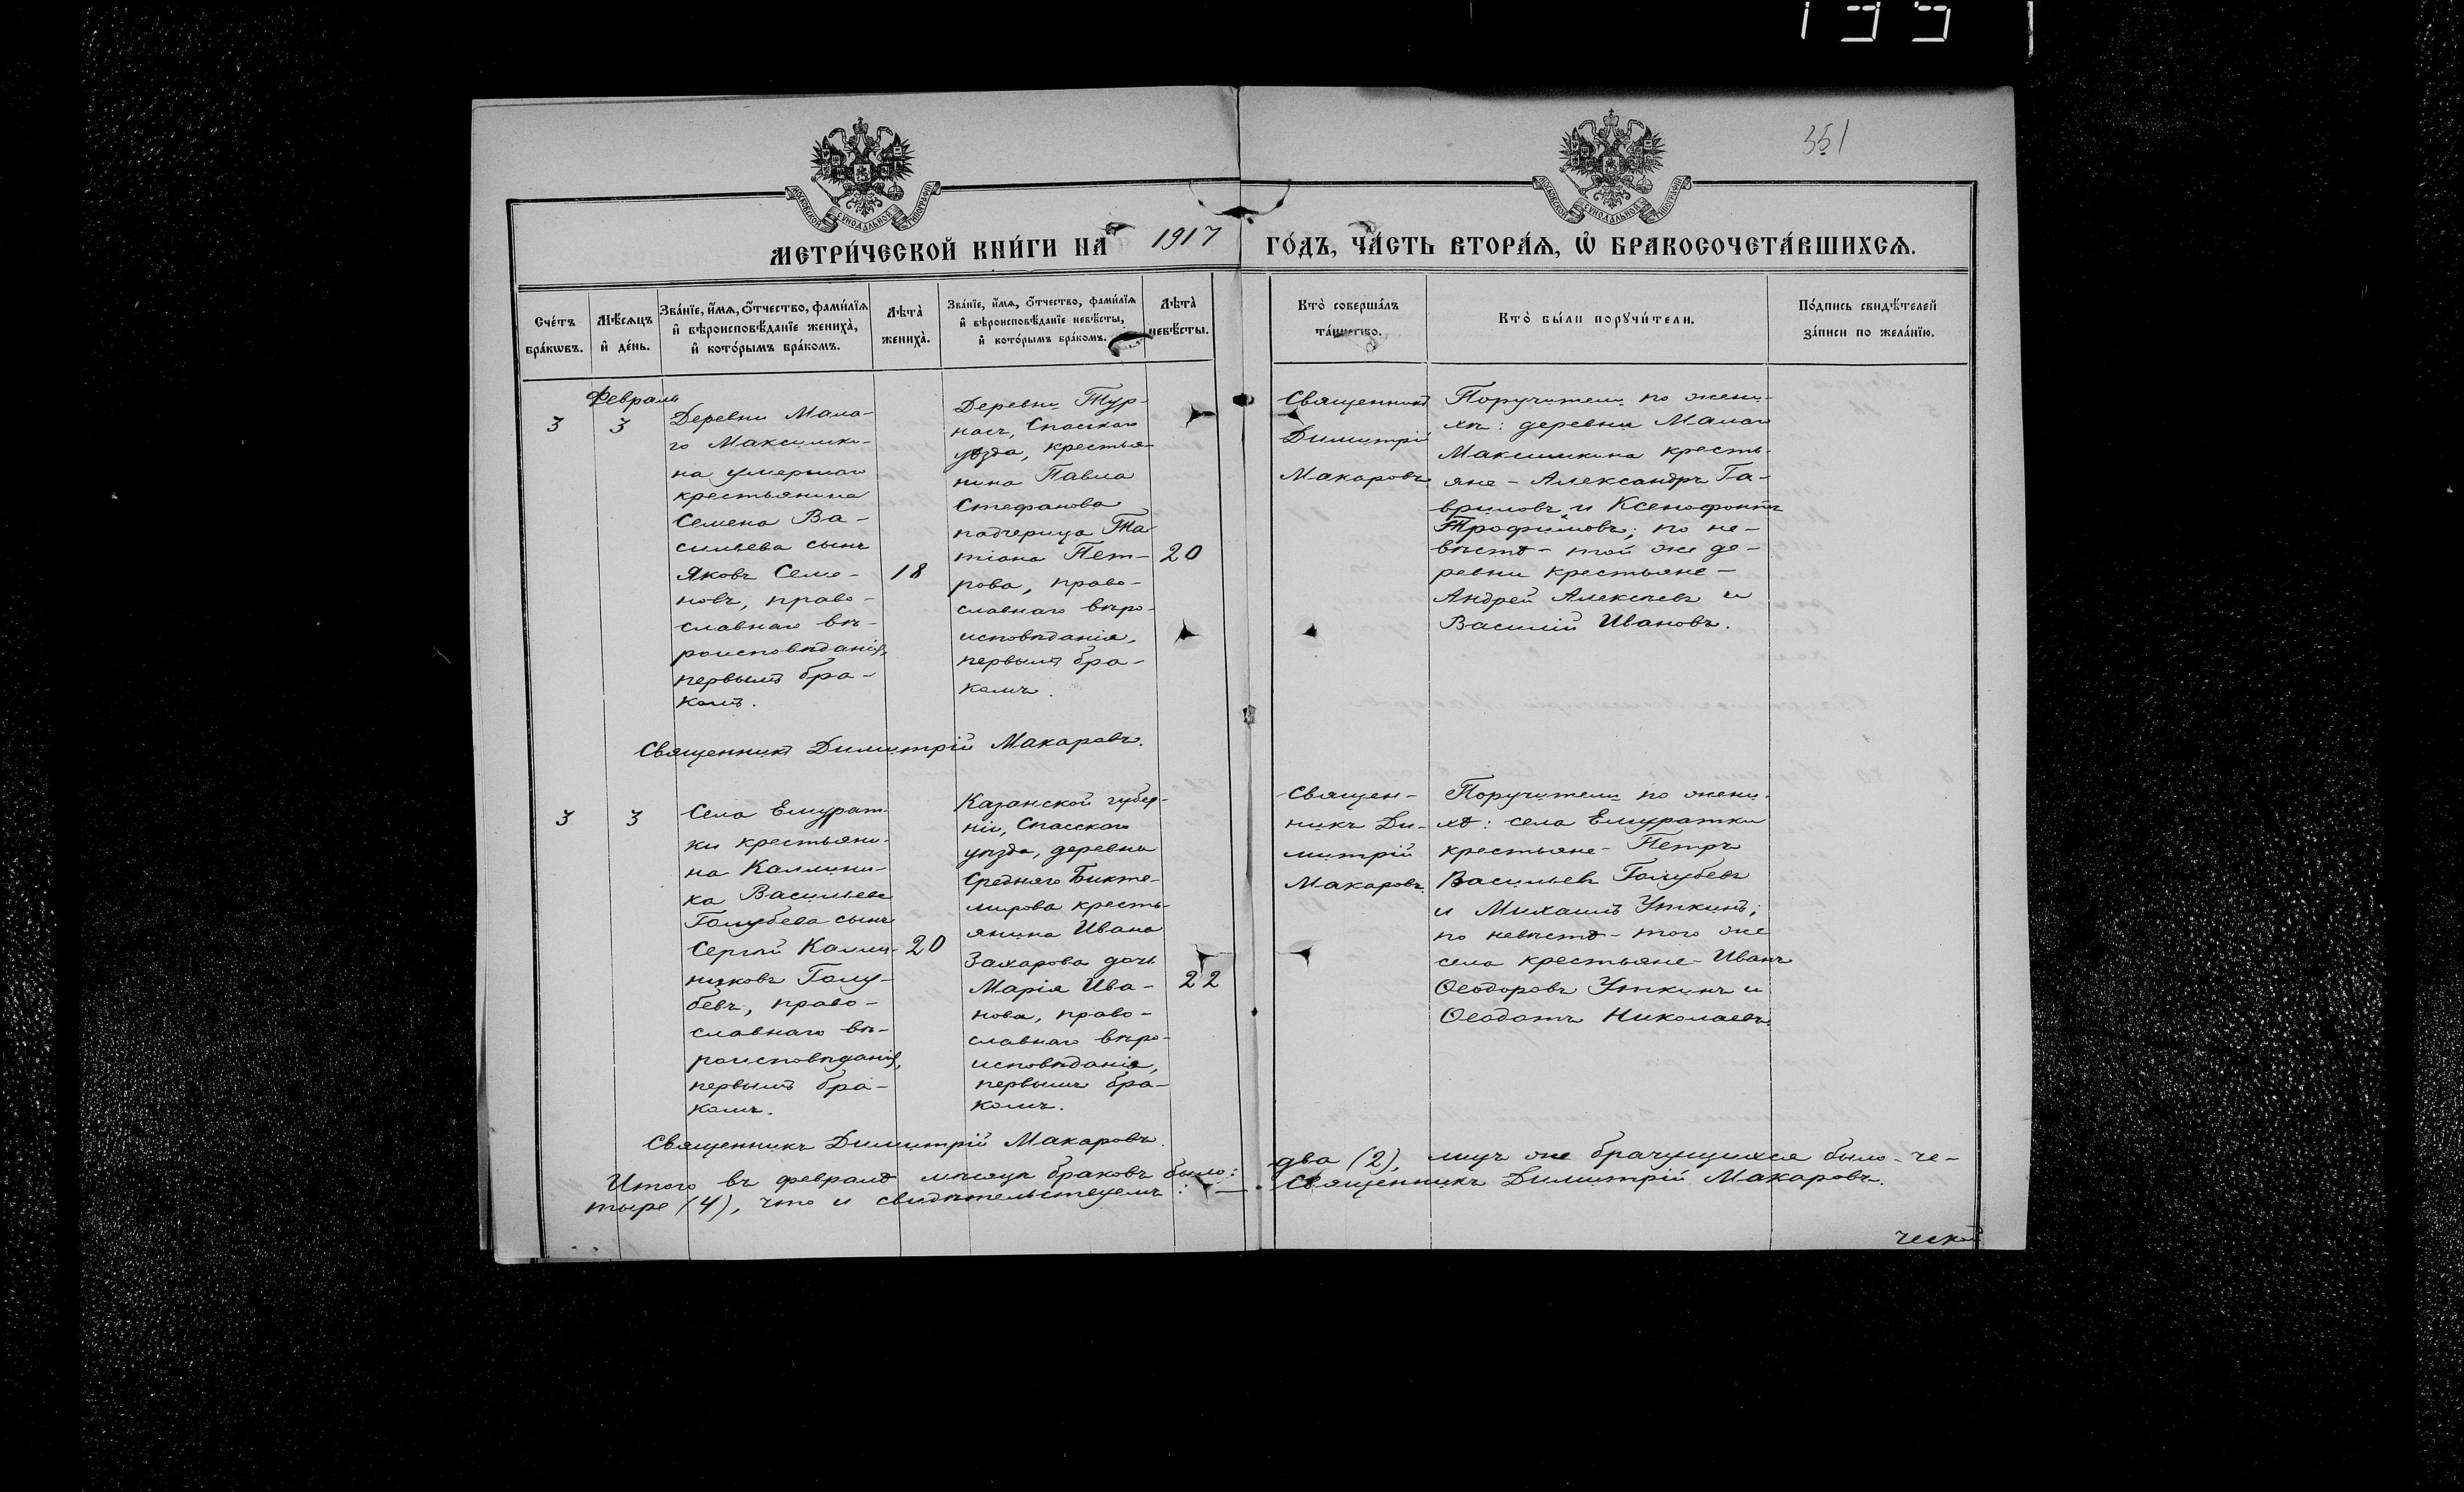 351
МОСКОВСКОЙ СѴНОДАЛЬНОЙ ТИПОГРАФІИ
МОСКОВСКОЙ СѴНОДАЛЬНОЙ ТИПОГРАФІИ
МЕТРИ́ЧЕСКОЙ КНИ́ГИ НА 1917 ГО́ДЪ, ЧА́СТЬ ВТОРА́Ѧ, Ѡ҆ БРАКОСОЧЕТА́ВШИХСѦ.
Сче́тъ
бра́кѡвъ.
Мѣ́сѧцъ
и҆ де́нь.
Зва́нїе, и҆́мѧ, ѻ҆́тчество, фами́лїѧ
и҆ вѣроисповѣ́данїе жениха̀,
и҆ кото́рымъ бра́комъ.
Лѣта̀
жениха̀.
Зва́нїе, и҆́мѧ, ѻ҆́тчество, фами́лїѧ
и҆ вѣроисповѣ́данїе невѣ́сты,
и҆ кото́рымъ бра́комъ.
Лѣта̀
невѣ́сты.
Кто̀ соверша́лъ
та́инство.
Кто̀ бы́ли порꙋчи́тели.
По́дпись свидѣ́телей
за́писи по жела́нїю.
Февраль
3
3
Деревни Мала-
го Максимки-
на умершаго
крестьянина
Семена Ва-
сильева сынъ
Яковъ Семе-
новъ, право-
славнаго вѣ-
роисповѣданія,
первымъ бра-
комъ.
18
Деревни Тур-
насъ, Спасскаго
уѣзда, крестья-
нина Павла
Стефанова
падчерица Та
тіана Пет-
рова, право-
славнаго вѣро-
исповѣданія,
первымъ бра-
комъ.
20
Священникъ
Димитрій
Макаровъ.
Поручители по жени-
хѣ: деревни Малаго
Максимкина кресть-
яне - Александръ Га-
вриловъ и Ксенофонтъ
Трофимовъ; по не-
вѣстѣ - той же де-
ревни крестьяне -
Андрей Алексѣевъ и
Василій Ивановъ.
Священникъ Димитрій Макаровъ.
3
3
Села Емурат-
ки крестьяни-
на Каллини-
ка Васильева
Голубева сынъ
Сергѣй Калли-
никовъ Голу-
бевъ, право-
славнаго вѣ-
роисповѣданія,
первымъ бра-
комъ.
20
Казанской губер-
ніи, Спасскаго
уѣзда, деревни
Средняго Бикте-
мирова кресть-
янина Ивана
Захарова дочь
Марія Ива-
нова, право-
славнаго вѣро-
исповѣданія,
первымъ бра-
комъ.
22
Священ-
никъ Ди-
митрій
Макаровъ.
Поручители по жени-
хѣ: села Емуратки
крестьяне - Петръ
Васильевъ Голубевъ
и Михаилъ Уткинъ;
по невѣстѣ - того же
села крестьяне - Иванъ
Ѳеодоровъ Уткинъ и
Ѳеодотъ Николаевъ.
Священникъ Димитрій Макаровъ.
Итого въ февралѣ мѣсяцѣ браковъ было: два (2), лицъ же брачущихся было - че-
тыре (4), что и свидѣтельствуемъ: — Священникъ Димитрій Макаровъ.
ческой